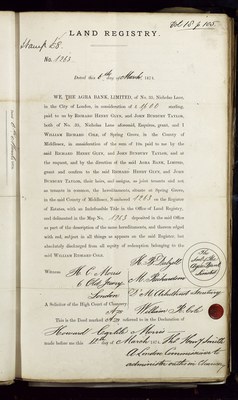 Vol 18 p 105
Stamp £8.
LAND REGISTRY.
No. 1263
Dated this 6th day of March 1871.
WE, THE AGRA BANK, LIMITED, of No. 35, Nicholas Lane,
in the City of London, in consideration of £ sterling,
paid to us by RICHARD HENRY GLYN, and JOHN BUNBURY TAYLOR,
both of No. 35, Nicholas Lane aforesaid, Esquires, grant, and I
WILLIAM RICHARD COLE, of Spring Grove, in the County of
Middlesex, in consideration of the sum of 10s paid to me by the
said RICHARD HENRY GLYN, and JOHN BUNBURY TAYLOR, and at
the request, and by the direction of the said AGRA BANK, LIMITED,
grant and confirm to the said RICHARD HENRY GLYN, and JOHN
BUNBURY TAYLOR, their heirs, and assigns, as joint tenants and not
as tenants in common, the hereditaments, situate at Spring Grove,
in the said County of Middlesex, Numbered 1263 on the Register
of Estates, with an Indefeasible Title in the Office of Land Registry,
and delineated in the Map No. 1263 deposited in the said Office
as part of the description of the same hereditaments, and thereon edged
with red, subject in all things as appears on the said Register, but
absolutely discharged from all equity of redemption belonging to the
said WILLIAM RICHARD COLE.
Witness
H. C. Morris
6 Old Jewry
London
A Solicitor of the High Court of Chancery
The Seal of the Agra Bank Limited
M. Richardson
Secretary
William R. Cole
This is the Deed marked A referred to in the Declaration of
Howard Morris
made before me this day of March
A London Commissioner to
administer oaths in Chancery